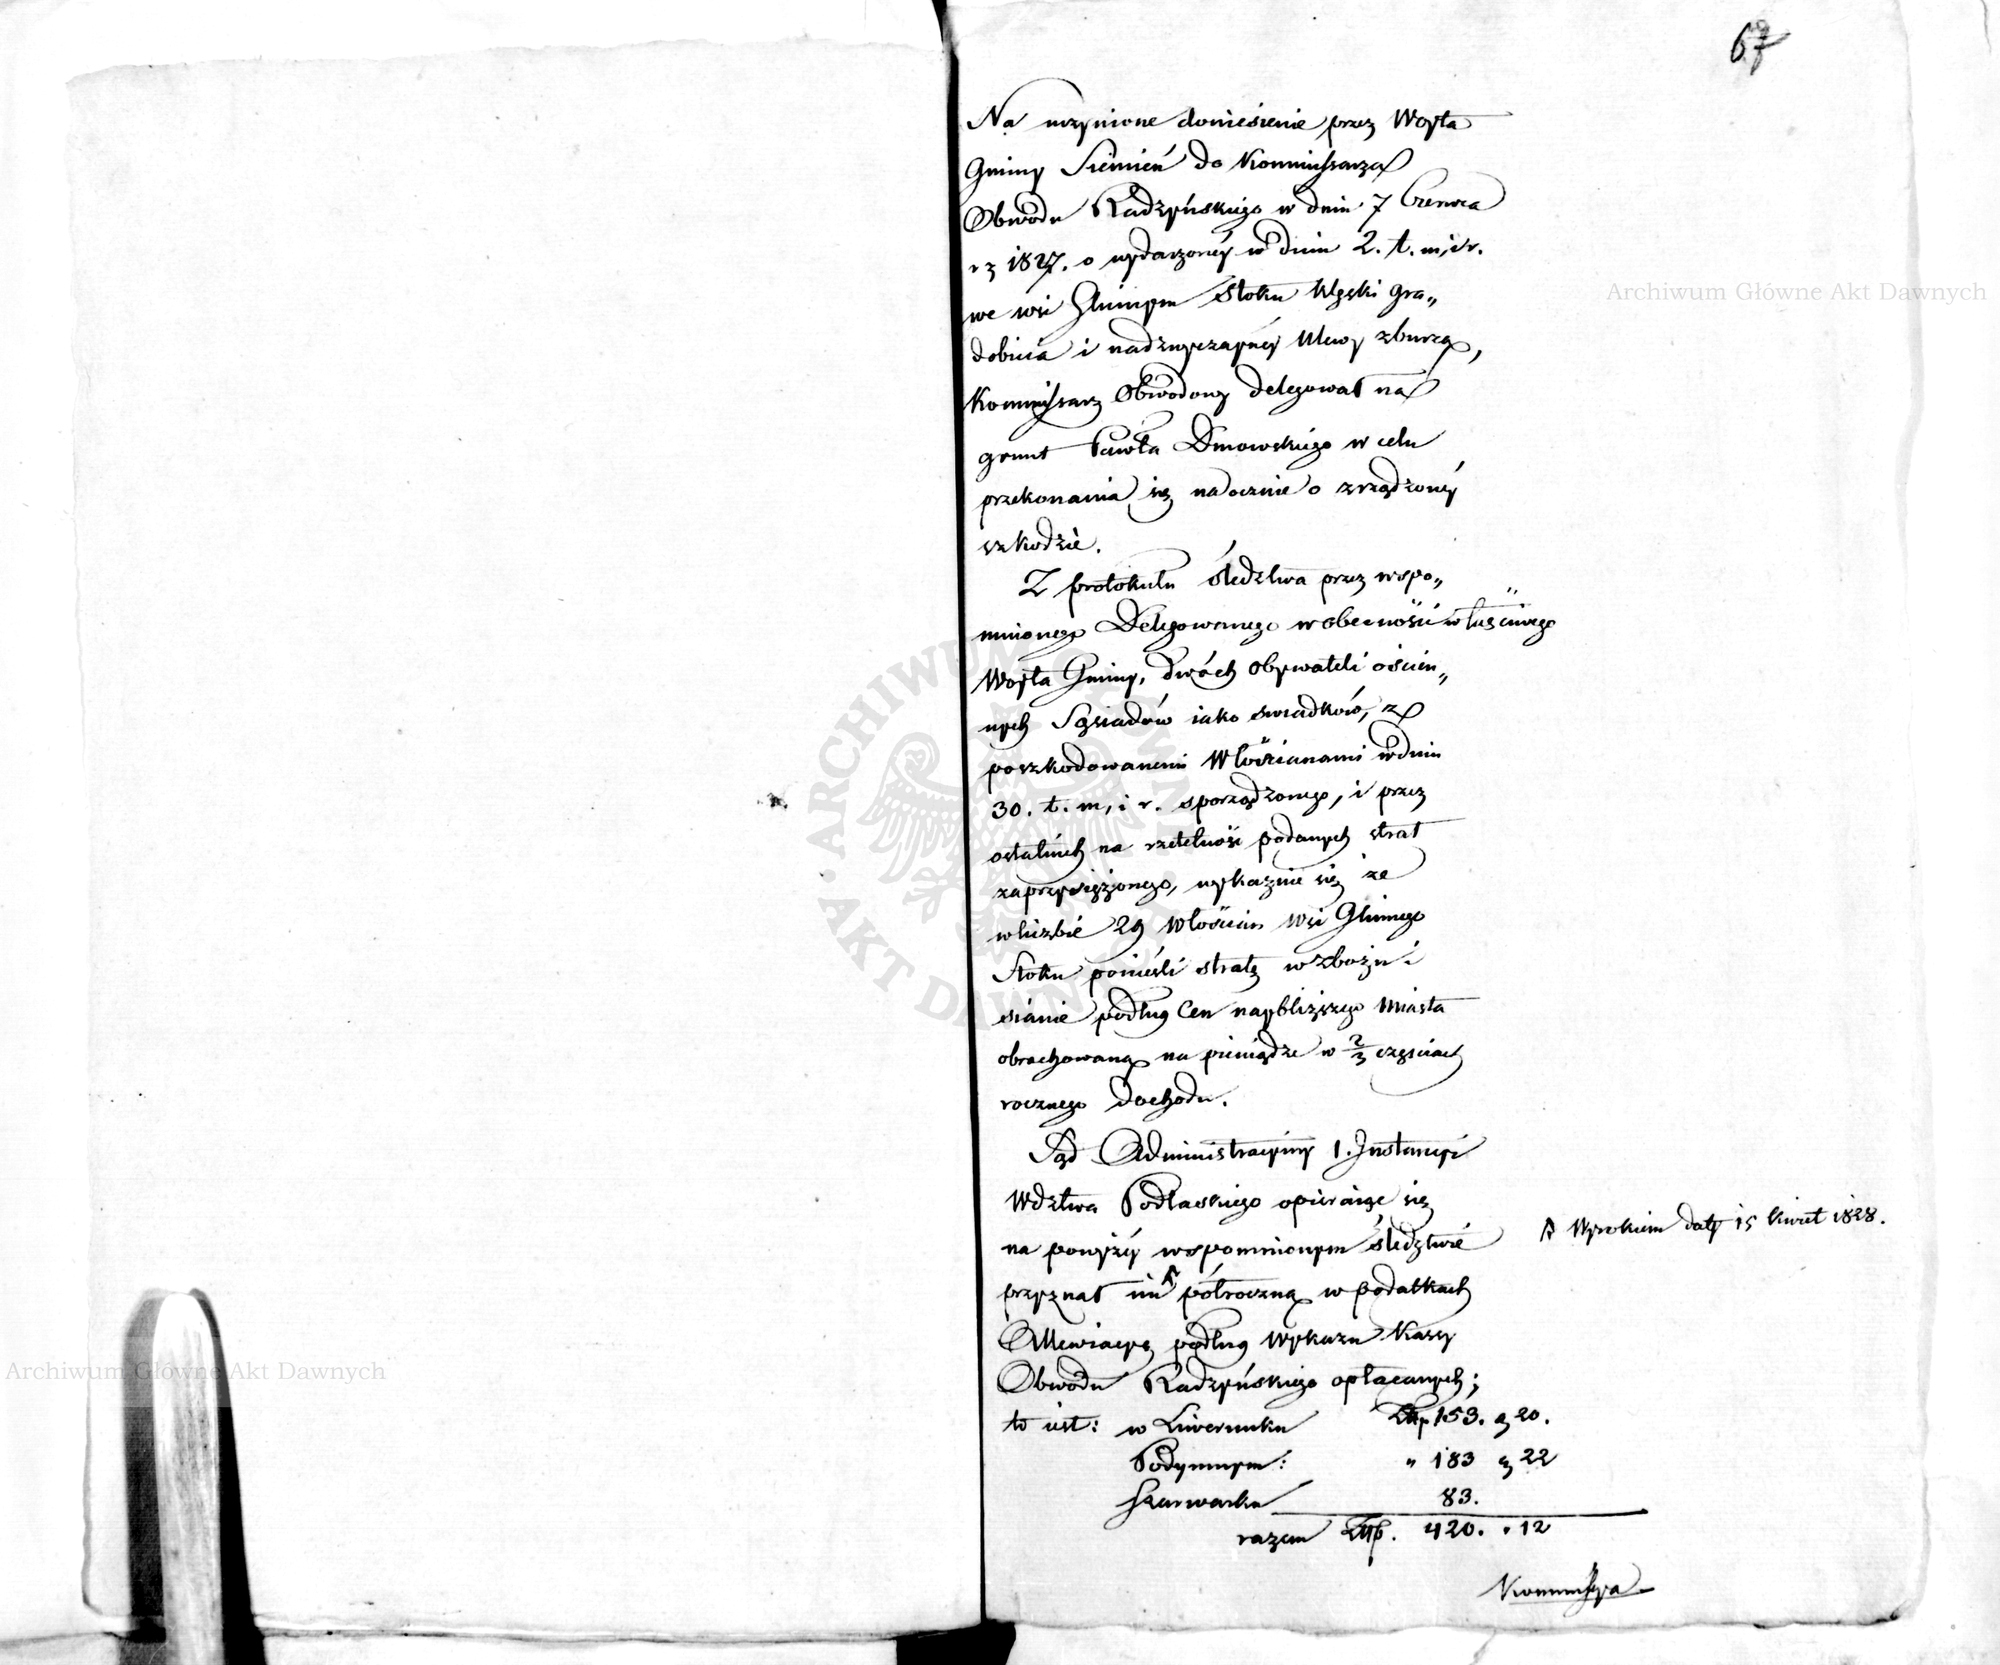 67
Na uczynione doniesienie przez Woyta
Gminy Siemień do Kommissarza
Obwodu Radzyńskiego w dniu 7 Czerwca
rz 1827. o wydarzonéy w dniu 2. t. m, i r.
we wsi Glinnym Stoku klęski gra„
dobicia i nadzwyczaynéy ulewy z burzą,
Kommissarz Obwodowy delegował na
grunt Pawła Dmowskiego w celu
przekonania się naocznie o zrządzonéy
szkodzie.
Z protokułu śledztwa przez wspo„
mnionego Delegowanego w obecności właściwego
Woyta Gminy, dwóch obywateli ościen„
nych Sąsiadów iako swiadków, z
poszkodowanemi Włościanami w dniu
30. t. m, i r. sporządzonego, i przez
ostatnich na rzetelność podanych strat
zaprzysiężonego, wykazuie się że
w liczbie 29 Włościan wsi Glinnego
Stoku ponieśli stratę w zbożu i
sianie podług Cen naybliższego Miasta
obrachowaną na pieniądze w 2/3 częściach
rocznego dochodu.
Sąd Administracyiny 1. Instancyi
Wdztwa Podlaskiego opieraiąc się
na powyżéy wspomnionym śledztwie
przyznał im półroczną w podatkach
Wyrokiem daty 15 Kwiet 1828.
Allewiacyę podług Wykazu Kassy
Obwodu Radzyńskiego opłacanych;
to iest: w Liwerunku Złp 153. g 20.
Podymnym: „ 183 g 22
Szarwarku 83.
razem Złp. 420. „ 12
Kommissya
Archiwum Główne Akt Dawnych
Archiwum Główne Akt Dawnych
ARCHIWUM GŁÓWNE AKT DAWNYCH